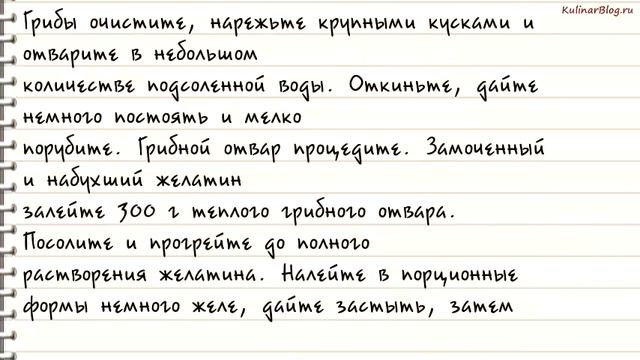 KulinarBlog.ru
Грибы очистите, нарежьте крупными кусками и
отварите в небольшом
количестве подсоленной воды. Откиньте, дайте
немного постоять и мелко
порубите. Грибной отвар процедите. Замоченный
и набухший желатин
залейте 300 г теплого грибного отвара.
Посолите и прогрейте до полного
растворения желатина. Налейте в порционные
формы немного желе, дайте застыть, затем